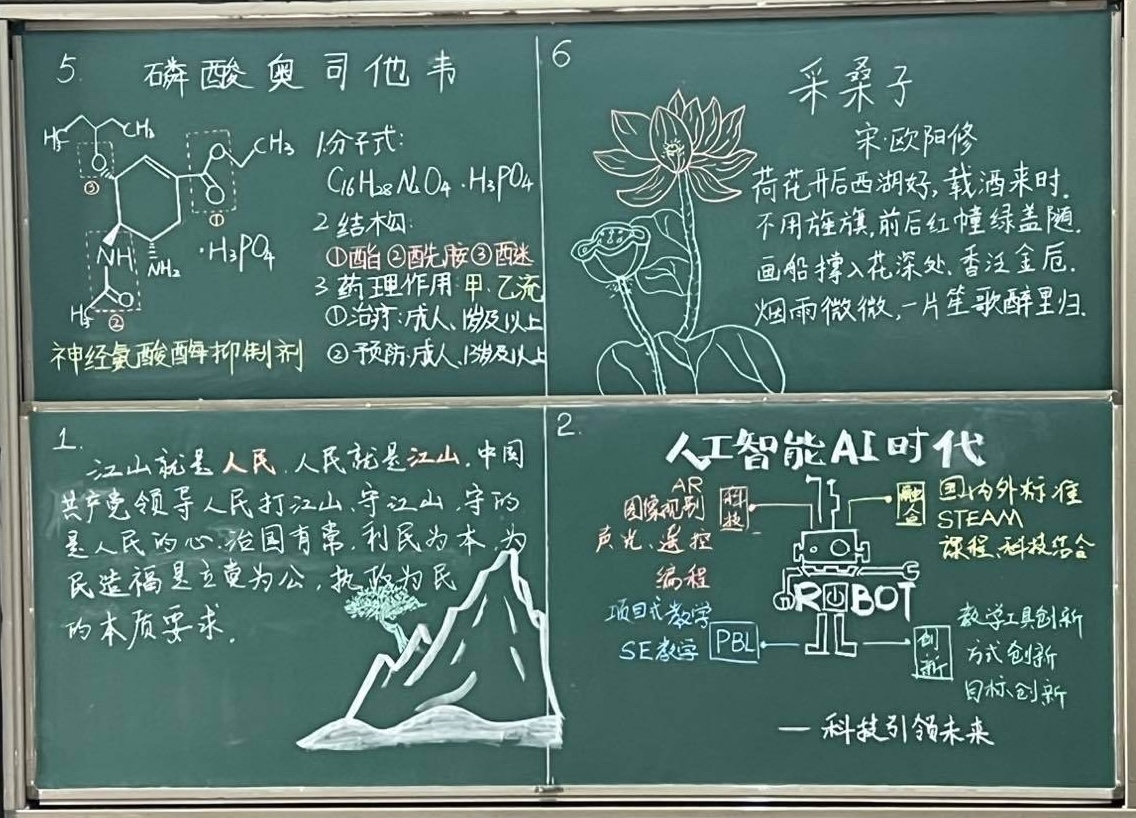 5.
磷酸奥司他韦
H₃C
CH₃
O
③
O
O
CH₃
①
NH
NH₂
·H₃PO₄
O
H₃C
②
神经氨酸酶抑制剂
1.分子式:
C₁₆H₂₈N₂O₄·H₃PO₄
2 结构:
①酯 ②酰胺 ③醚
3 药理作用:甲.乙流
①治疗:成人、1岁及以上
②预防:成人、13岁及以上
6
采桑子
宋·欧阳修
荷花开后西湖好,载酒来时.
不用旌旗,前后红幢绿盖随.
画船撑入花深处.香泛金卮.
烟雨微微,一片笙歌醉里归.
1.
江山就是人民.人民就是江山.中国
共产党领导人民打江山、守江山,守的
是人民的心.治国有常,利民为本.为
民造福是立党为公,执政为民
的本质要求.
2.
人工智能AI时代
AR
图像识别
声光、遥控
编程
科技
融合
国内外标准
STEAM
课程、科技结合
ROBOT
项目式教学
SE教学
PBL
创新
教学工具创新
方式创新
目标创新
—科技引领未来